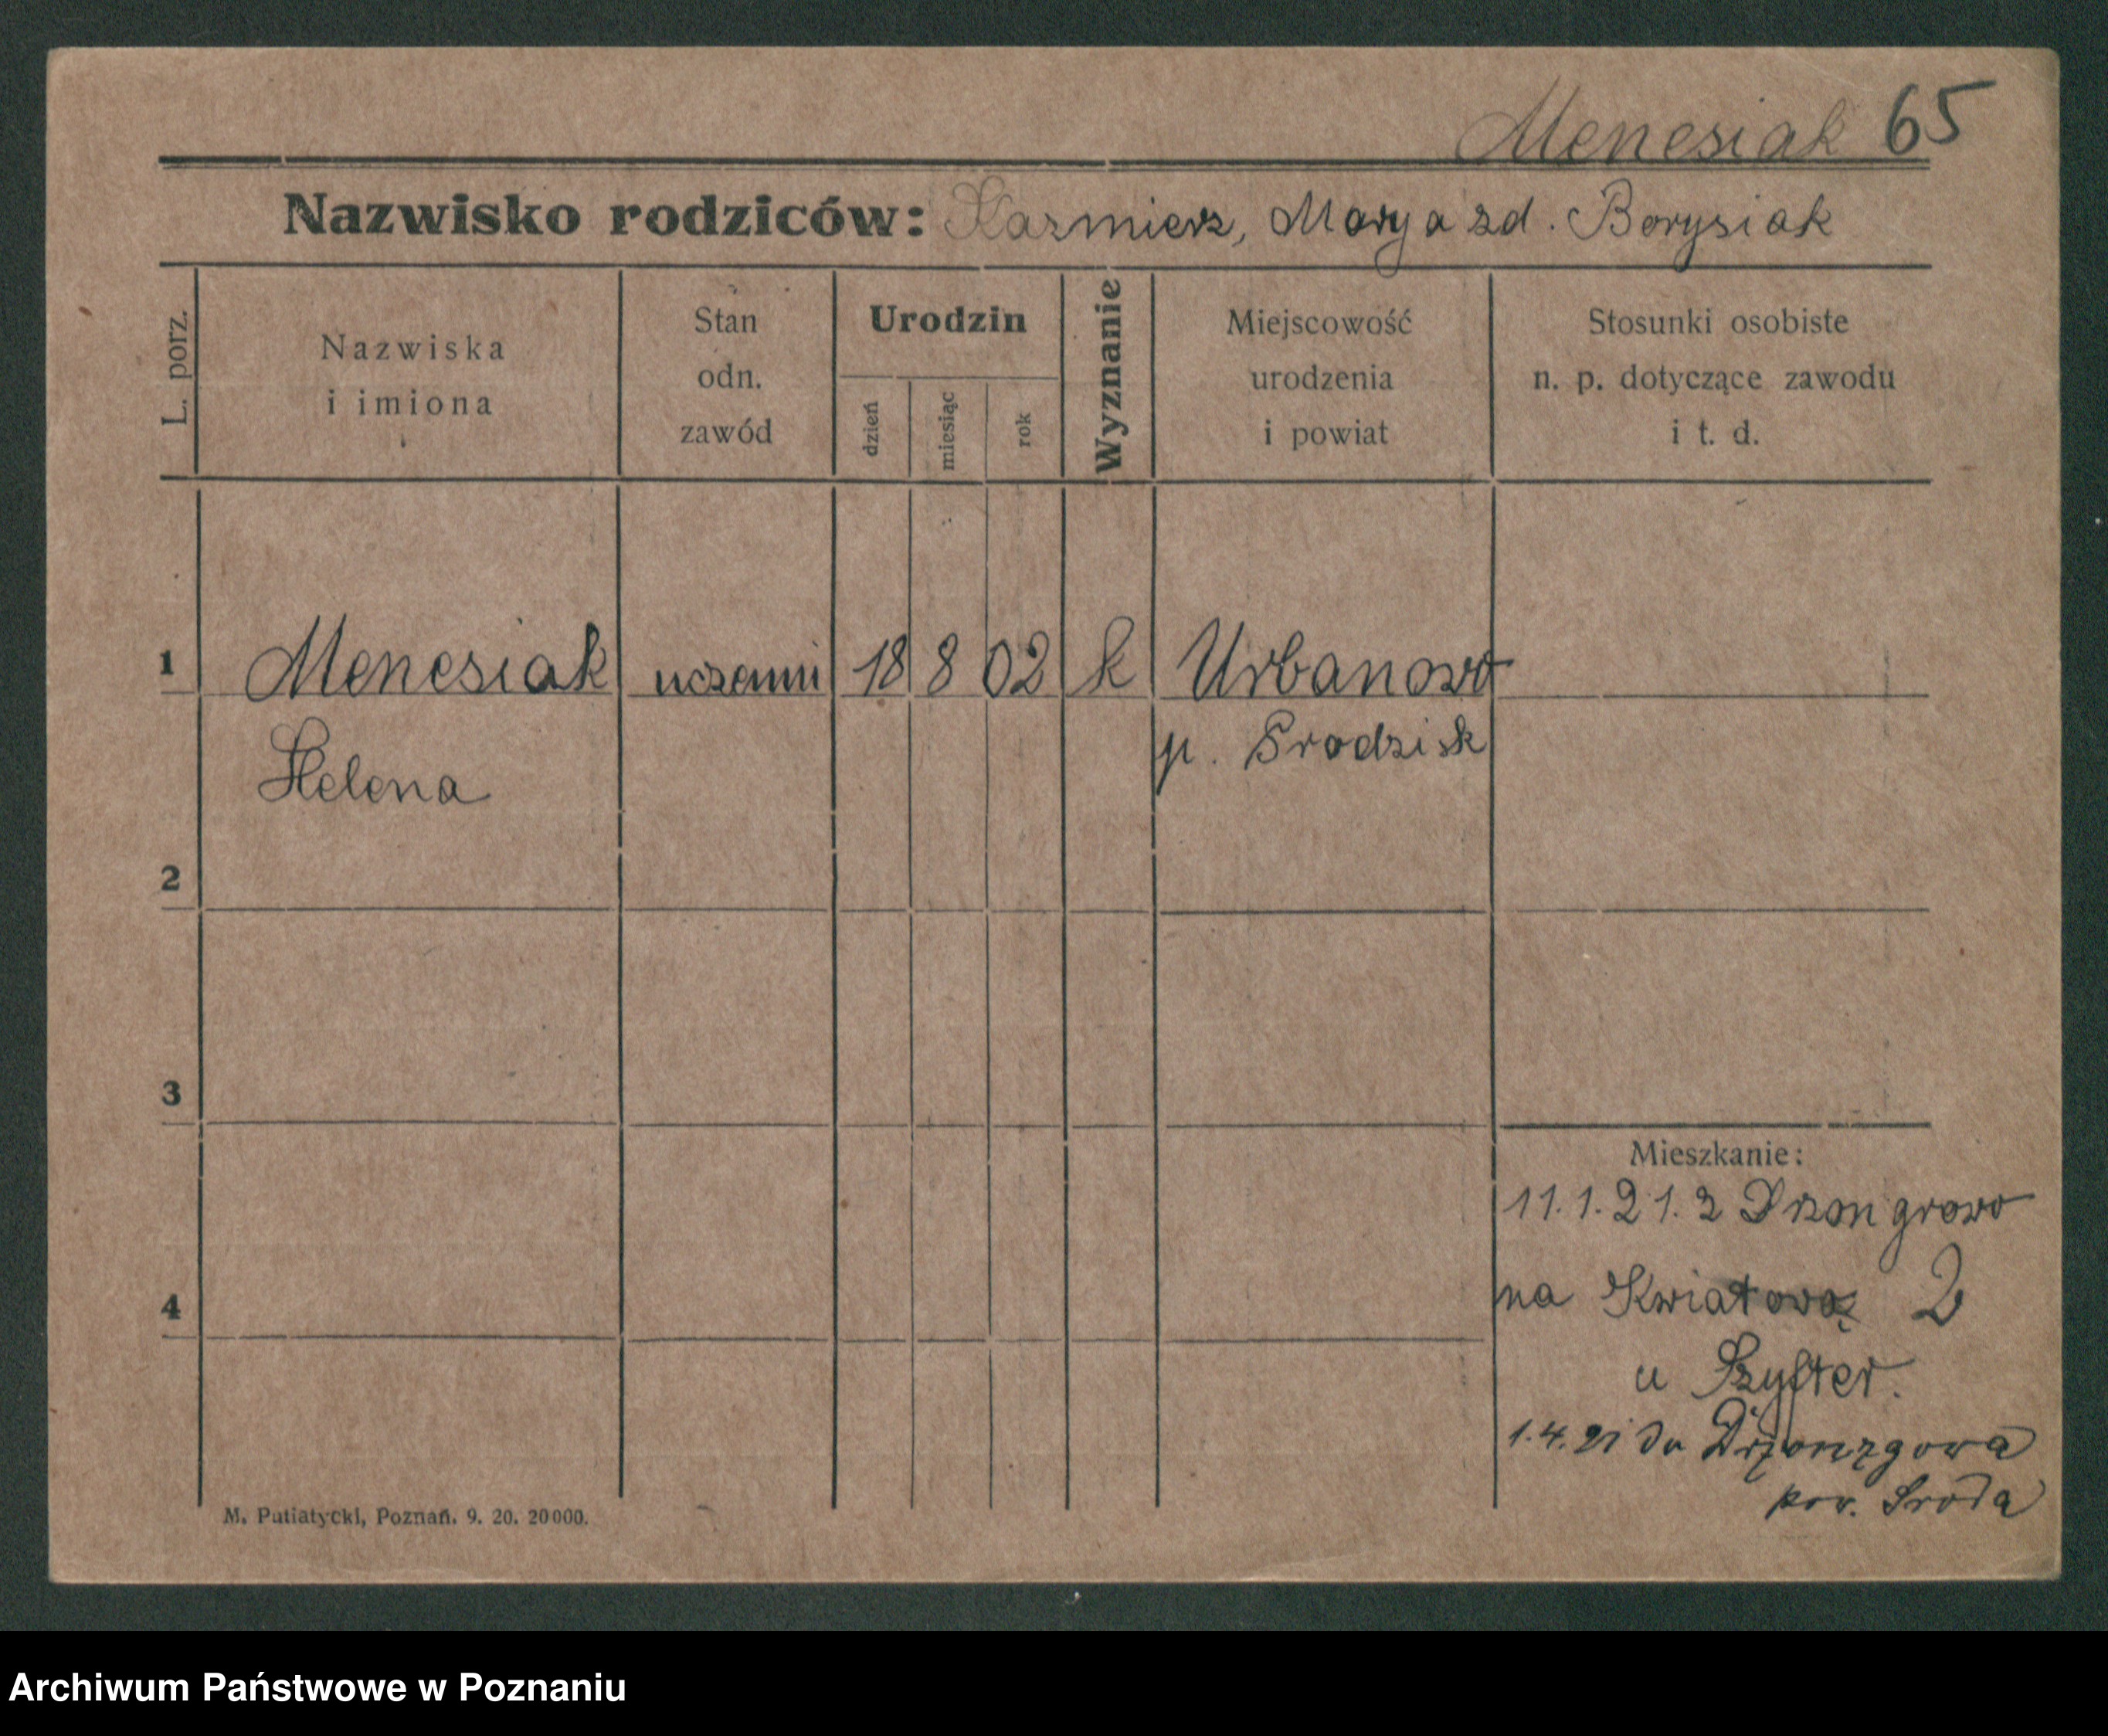 Menesiak 65
Nazwisko rodziców: Kazmierz, Marya zd. Borysiak
L. porz.
Nazwiska
i imiona
Stan
odn.
zawód
Urodzin
dzień
miesiąc
rok
Wyznanie
Miejscowość
urodzenia
i powiat
Stosunki osobiste
n. p. dotyczące zawodu
i t. d.
1 Menesiak uczenni 18 8 02 k Urbanowo
Helena p. Grodzisk
2
3
Mieszkanie:
11.1.21. z Drzongrowo
4 na Kwiatową 2
u Szyfter.
1.4.21 do
pow. Sroda
M. Putiatycki, Poznań. 9. 20. 20000.
Archiwum Państwowe w Poznaniu